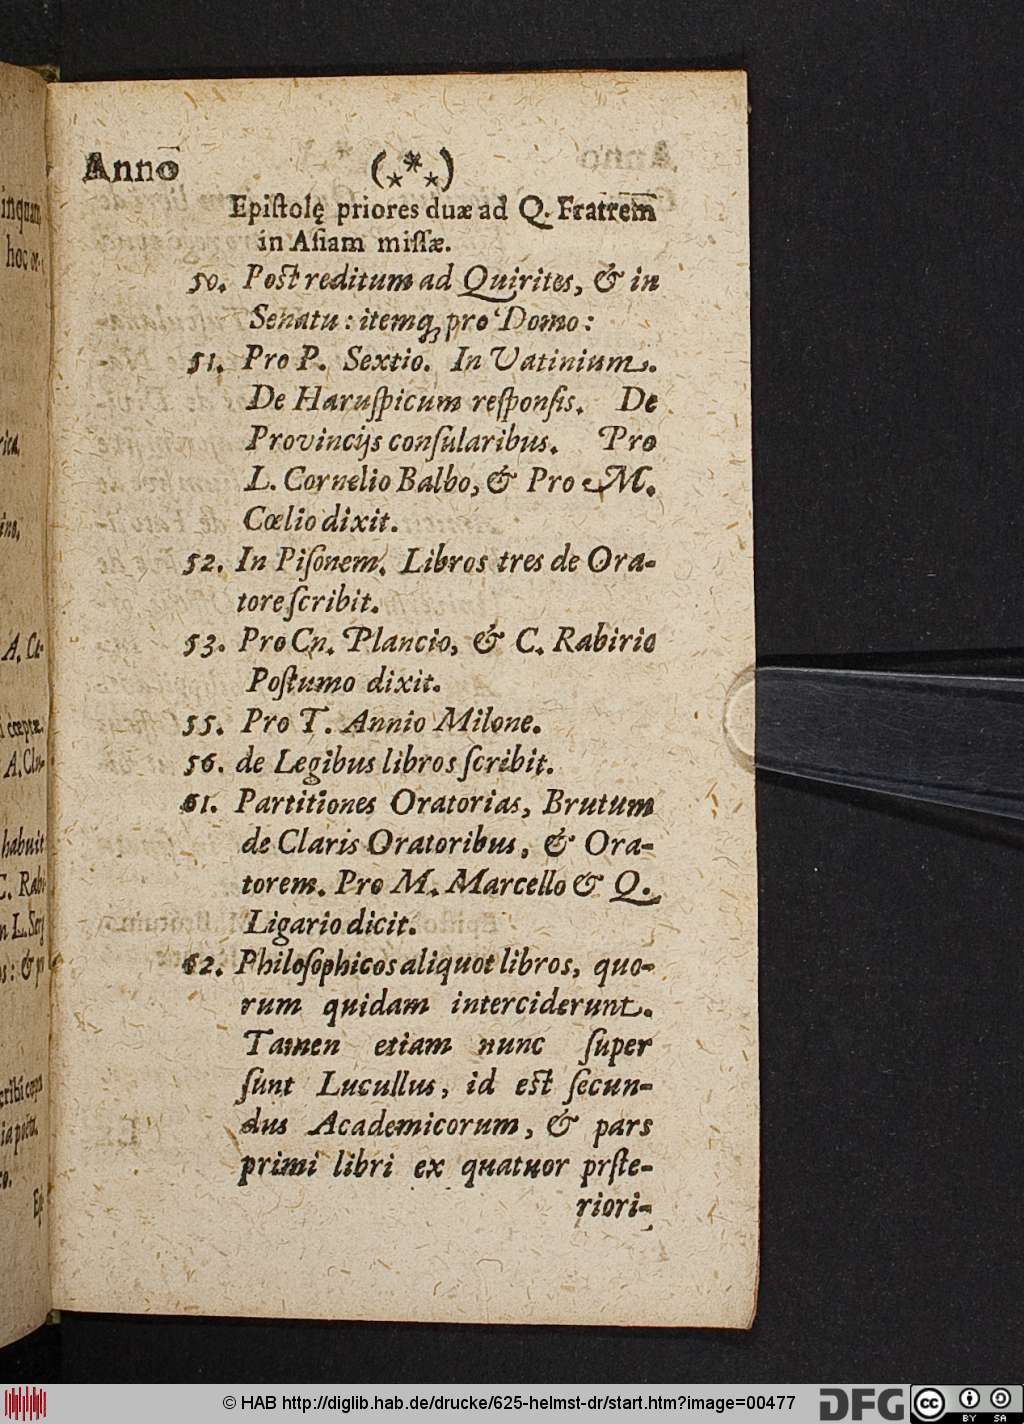 Anno (***)
Epiſtolę priores duæ ad Q. Fratrem
in Aſiam miſſæ.
50. Post reditum ad Quirites, & in
Senatu: itemq; pro Domo:
51. Pro P. Sextio. In Vatinium.
De Haruſpicum reſponſis. De
Provincijs conſularibus. Pro
L. Cornelio Balbo, & Pro M.
Cœlio dixit.
52. In Piſonem. Libros tres de Ora-
tore ſcribit.
53. Pro Cn. Plancio, & C. Rabirio
Poſtumo dixit.
55. Pro T. Annio Milone.
56. de Legibus libros ſcribit.
61. Partitiones Oratorias, Brutum
de Claris Oratoribus, & Ora-
torem. Pro M. Marcello & Q.
Ligario dicit.
62. Philoſophicos aliquot libros, quo-
rum quidam interciderunt.
Tamen etiam nunc ſuper
ſunt Lucullus, id est ſecun-
dus Academicorum, & pars
primi libri ex quatuor prſte-
riori-
inquam
hoc
A. Cæ-
cœptæ.
A. Clu-
habuit
C. Rabi-
L. Serg
& p
© HAB http://diglib.hab.de/drucke/625-helmst-dr/start.htm?image=00477
DFG
cc
BY SA